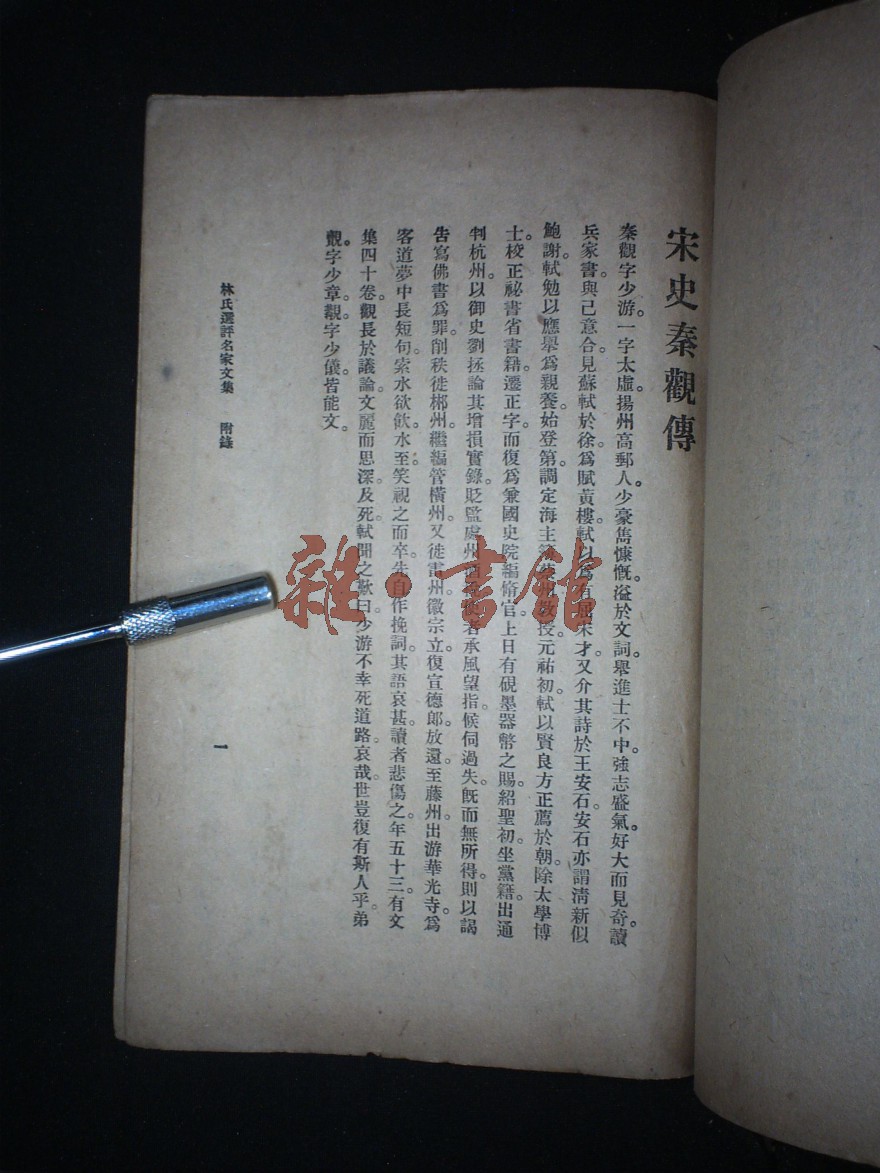 宋史秦觀傳
秦觀字少游。一字太虛。揚州高郵人。少豪雋慷慨。溢於文詞。舉進士不中。強志盛氣。好大而見奇。讀
兵家書。與己意合。見蘇軾於徐。爲賦黃樓。軾以爲有屈宋才。又介其詩於王安石。安石亦謂淸新似
鮑謝。軾勉以應舉爲親養。始登第。調定海主簿蔡州敎授。元祐初。軾以賢良方正薦於朝。除太學博
士。校正祕書省書籍。遷正字。而復爲兼國史院編脩官。上日有硯墨器幣之賜。紹聖初。坐黨籍。出通
判杭州。以御史劉拯論其增損實錄。貶監處州酒稅。使者承風望指。候伺過失。旣而無所得。則以謁
告寫佛書爲罪。削秩徙郴州。繼編管橫州。又徙雷州。徽宗立。復宣德郎。放還。至藤州。出游華光寺。爲
客道夢中長短句。索水欲飮。水至。笑視之而卒。先自作挽詞。其語哀甚。讀者悲傷之。年五十三。有文
集四十卷。觀長於議論。文麗而思深。及死。軾聞之歎曰。少游不幸死道路。哀哉。世豈復有斯人乎。弟
覿。字少章。覯。字少儀。皆能文。
林氏選評名家文集 附錄
一
雜·書館